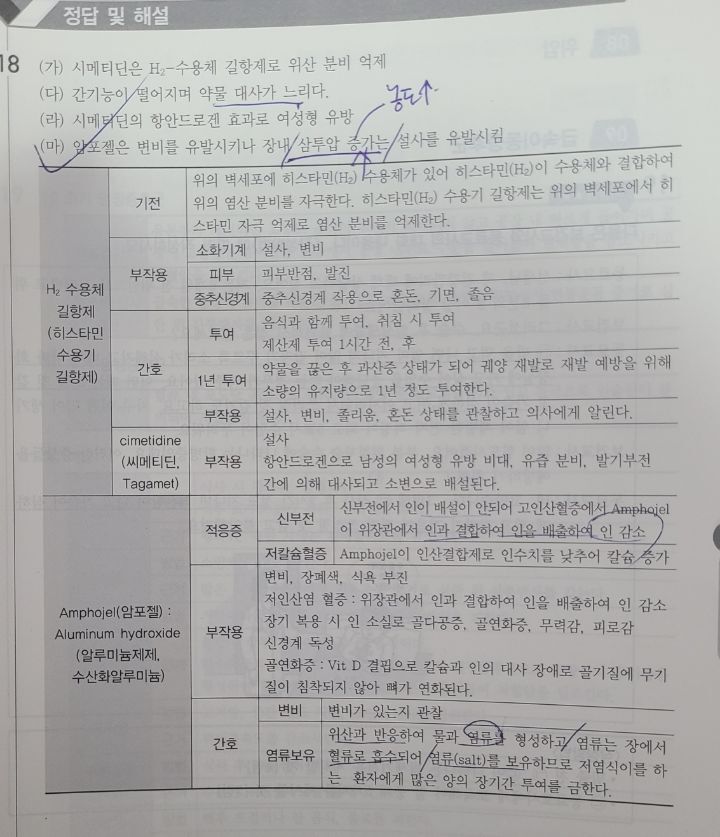 정답 및 해설
18
(가) 시메티딘은 H₂-수용체 길항제로 위산 분비 억제
(다) 간기능이 떨어지며 약물 대사가 느리다.
농도↑
(라) 시메티딘의 항안드로겐 효과로 여성형 유방
(마) 암포젤은 변비를 유발시키나 장내 삼투압 증가는 설사를 유발시킴
H₂ 수용체
길항제
(히스타민
수용기
길항제)
기전
위의 벽세포에 히스타민(H₂) 수용체가 있어 히스타민(H₂)이 수용체와 결합하여
위의 염산 분비를 자극한다. 히스타민(H₂) 수용기 길항제는 위의 벽세포에서 히
스타민 자극 억제로 염산 분비를 억제한다.
부작용
소화기계 설사, 변비
피부 피부반점, 발진
중추신경계 중추신경계 작용으로 혼돈, 기면, 졸음
간호
투여
음식과 함께 투여, 취침 시 투여
제산제 투여 1시간 전, 후
1년 투여
약물을 끊은 후 과산증 상태가 되어 궤양 재발로 재발 예방을 위해
소량의 유지량으로 1년 정도 투여한다.
부작용 설사, 변비, 졸리움, 혼돈 상태를 관찰하고 의사에게 알린다.
cimetidine
(씨메티딘,
Tagamet)
부작용
설사
항안드로겐으로 남성의 여성형 유방 비대, 유즙 분비, 발기부전
간에 의해 대사되고 소변으로 배설된다.
Amphojel(암포젤) :
Aluminum hydroxide
(알루미늄제제,
수산화알루미늄)
적응증
신부전
신부전에서 인이 배설이 안되어 고인산혈증에서 Amphojel
이 위장관에서 인과 결합하여 인을 배출하여 인 감소
저칼슘혈증 Amphojel이 인산결합제로 인수치를 낮추어 칼슘 증가
부작용
변비, 장폐색, 식욕 부진
저인산염 혈증 : 위장관에서 인과 결합하여 인을 배출하여 인 감소
장기 복용 시 인 소실로 골다공증, 골연화증, 무력감, 피로감
신경계 독성
골연화증 : Vit D 결핍으로 칼슘과 인의 대사 장애로 골기질에 무기
질이 침착되지 않아 뼈가 연화된다.
간호
변비 변비가 있는지 관찰
염류보유
위산과 반응하여 물과 염류를 형성하고 염류는 장에서
혈류로 흡수되어 염류(salt)를 보유하므로 저염식이를 하
는 환자에게 많은 양의 장기간 투여를 금한다.